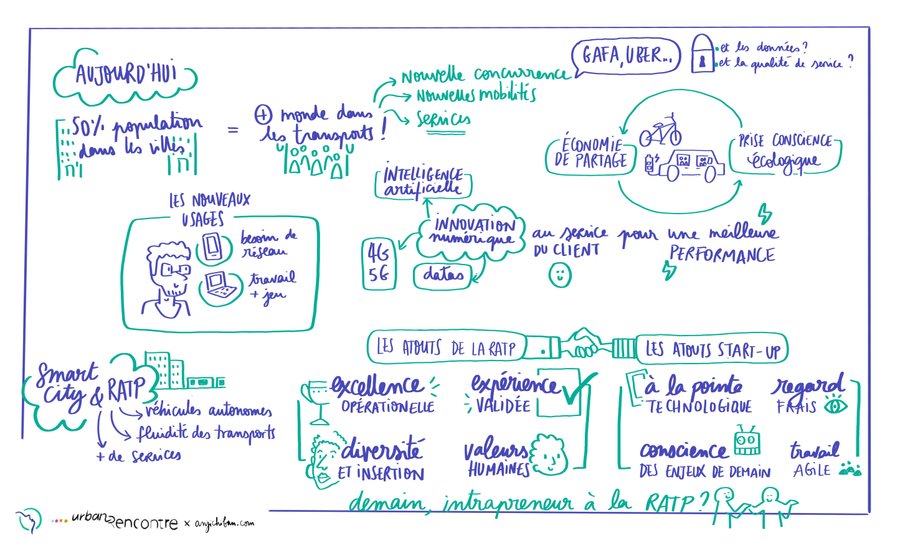 AUJOURD'HUI
50% population
dans les villes
=
+ monde dans
les transports !
Nouvelle concurrence
Nouvelles mobilités
Services
GAFA, UBER...
et les données ?
et la qualité de service ?
ÉCONOMIE
DE PARTAGE
PRISE CONSCIENCE
écologique
LES NOUVEAUX
USAGES
besoin de
réseau
travail
+ jeu
INTELLIGENCE
artificielle
INNOVATION
numérique
4G
5G
datas
au service pour une meilleure
DU CLIENT
PERFORMANCE
Smart
City & RATP
véhicules autonomes
fluidité des transports
+ de services
LES ATOUTS DE LA RATP
LES ATOUTS START-UP
excellence
OPÉRATIONELLE
expérience
VALIDÉE
diversité
ET INSERTION
valeurs
HUMAINES
à la pointe
TECHNOLOGIQUE
regard
FRAIS
conscience
DES ENJEUX DE DEMAIN
travail
AGILE
demain, intrapreneur à la RATP ?
urbanRencontre x